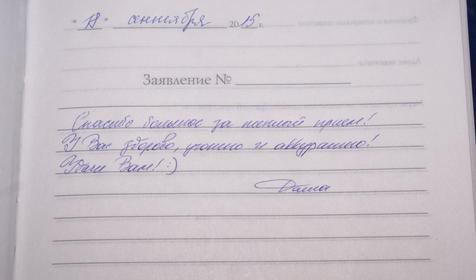 "18" сентября 2015 г.
Заявление №
Спасибо большое за теплый прием!
У Вас здорово, уютно и аккуратно!
Удачи Вам! :)
Даша